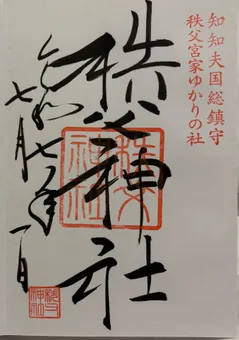 知知夫国総鎮守
秩父宮家ゆかりの社
秩父神社
秩父
神社
令和七年
七月一日